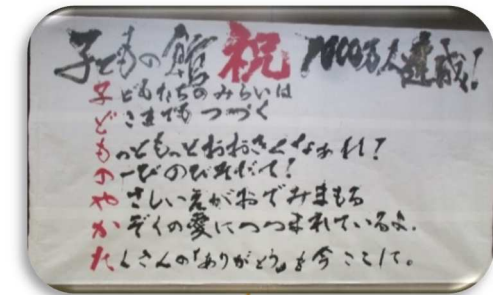 子どもの館 祝 1000万人達成!
子どもたちのみらいは
どこまでも つづく
もっともっとおおきくなぁれ!
のびのびそだて!
やさしいえがおでみまもる
かぞくの愛につつまれているよ。
たくさんの「ありがとう」を今ここに。